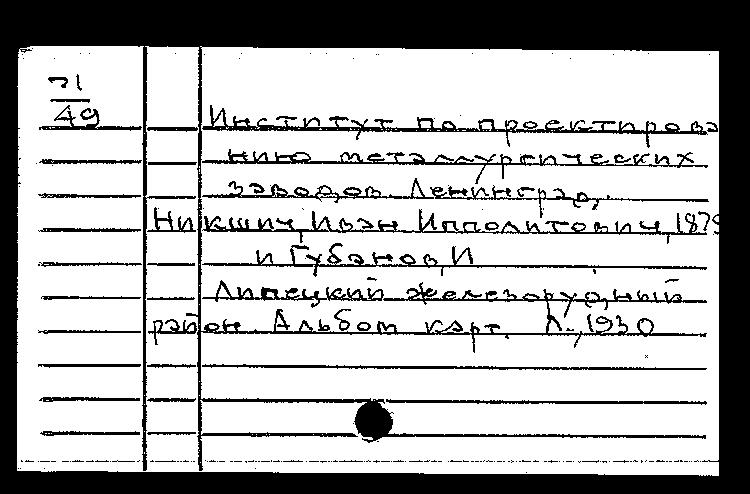 71
49
Институт по проектирова
нию металлургических
заводов. Ленинград.
Никшич, Иван Ипполитович, 1879
и Губанов, И
Липецкий железорудный
район. Альбом карт. Л., 1930